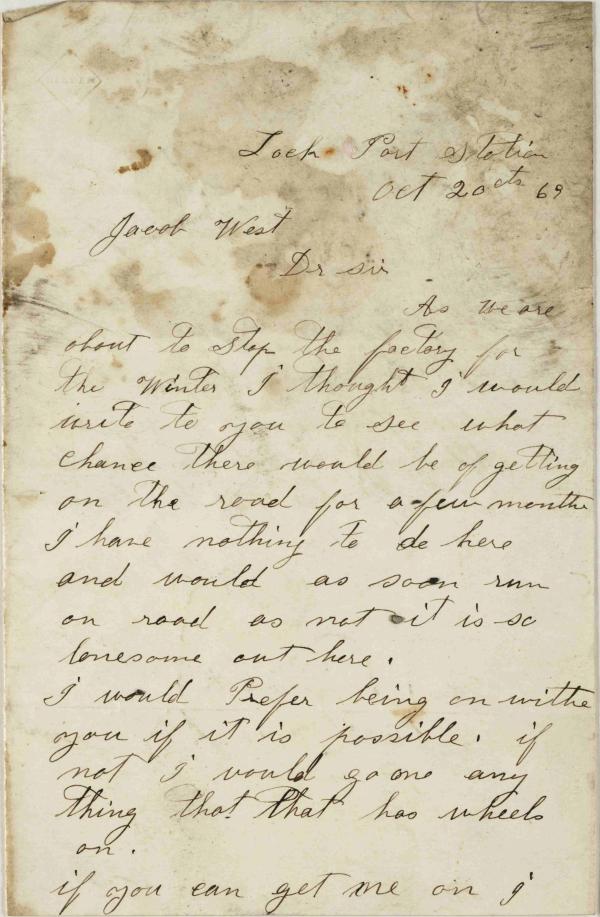 Lock Port Station
Oct 20cts 69
Jacob West
Dr sir
As we are
about to Stop the factory for
the Winter I thought I would
write to you to see what
chance there would be of getting
on the road for a few months
I have nothing to do here
and would as soon run
on road as not it is so
lonesome out here.
I would Prefer being on withe
you if it is possible. if
not I would go one any
thing that that has wheels
on.
if you can get me on I